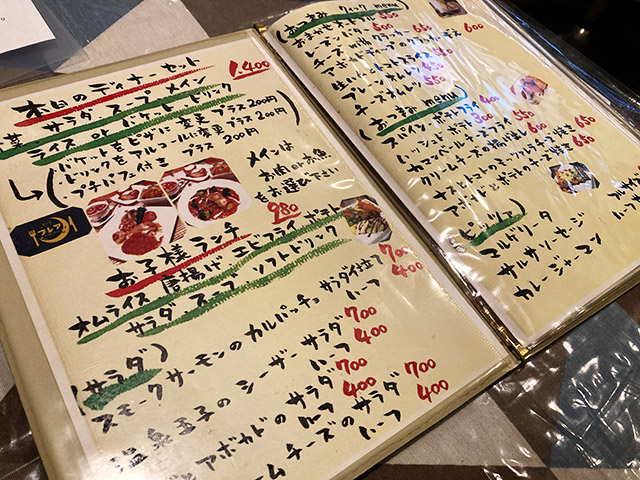 本日のディナーセット
1,400
サラダ・スープ・メイン
ライス or バケット・ドリンク
バケットをピザに変更 プラス200円
ドリンクをアルコールに変更 プラス200円
プチパフェ付き プラス 200円
メインは
お肉 or お魚
をお選び下さい
フレア
お子様ランチ
980
オムライス 唐揚げ エビフライ ポテト
サラダ・スープ ソフトドリンク
(サラダ)
スモークサーモンのカルパッチョ サラダ仕立て 700
ハーフ 400
温泉玉子のシーザーサラダ 700
ハーフ 400
アボカドのサラダ 700
ハーフ 400
ムチーズのサラダ 700
ハーフ 400
(おつまみ クイック menu)
550
レーズンバター 600
600
チーズオムレツ 550
(おつまみ menu)
スパイシーポテトフライ 400
カマンベールチーズフライ
クリームチーズの
アボカドとポテトのチーズ焼き
(ピッツア)
マルゲリータ
サルサソーセージ
カレージャーマン